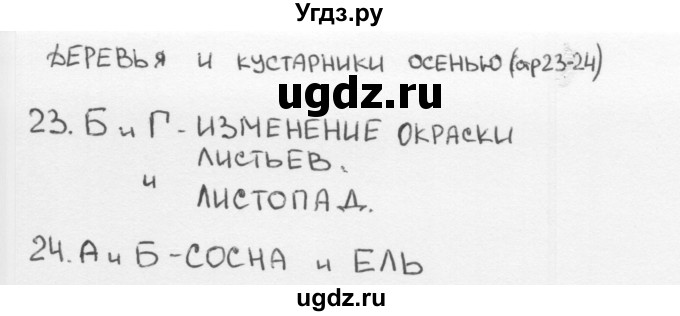 Угдз.ру
ДЕРЕВЬЯ И КУСТАРНИКИ ОСЕНЬЮ (стр 23-24)
ugdz.ru
23. Б и Г - ИЗМЕНЕНИЕ ОКРАСКИ
ЛИСТЬЕВ.
И
ЛИСТОПАД.
24. А и Б - СОСНА И ЕЛЬ
ugdz.ru